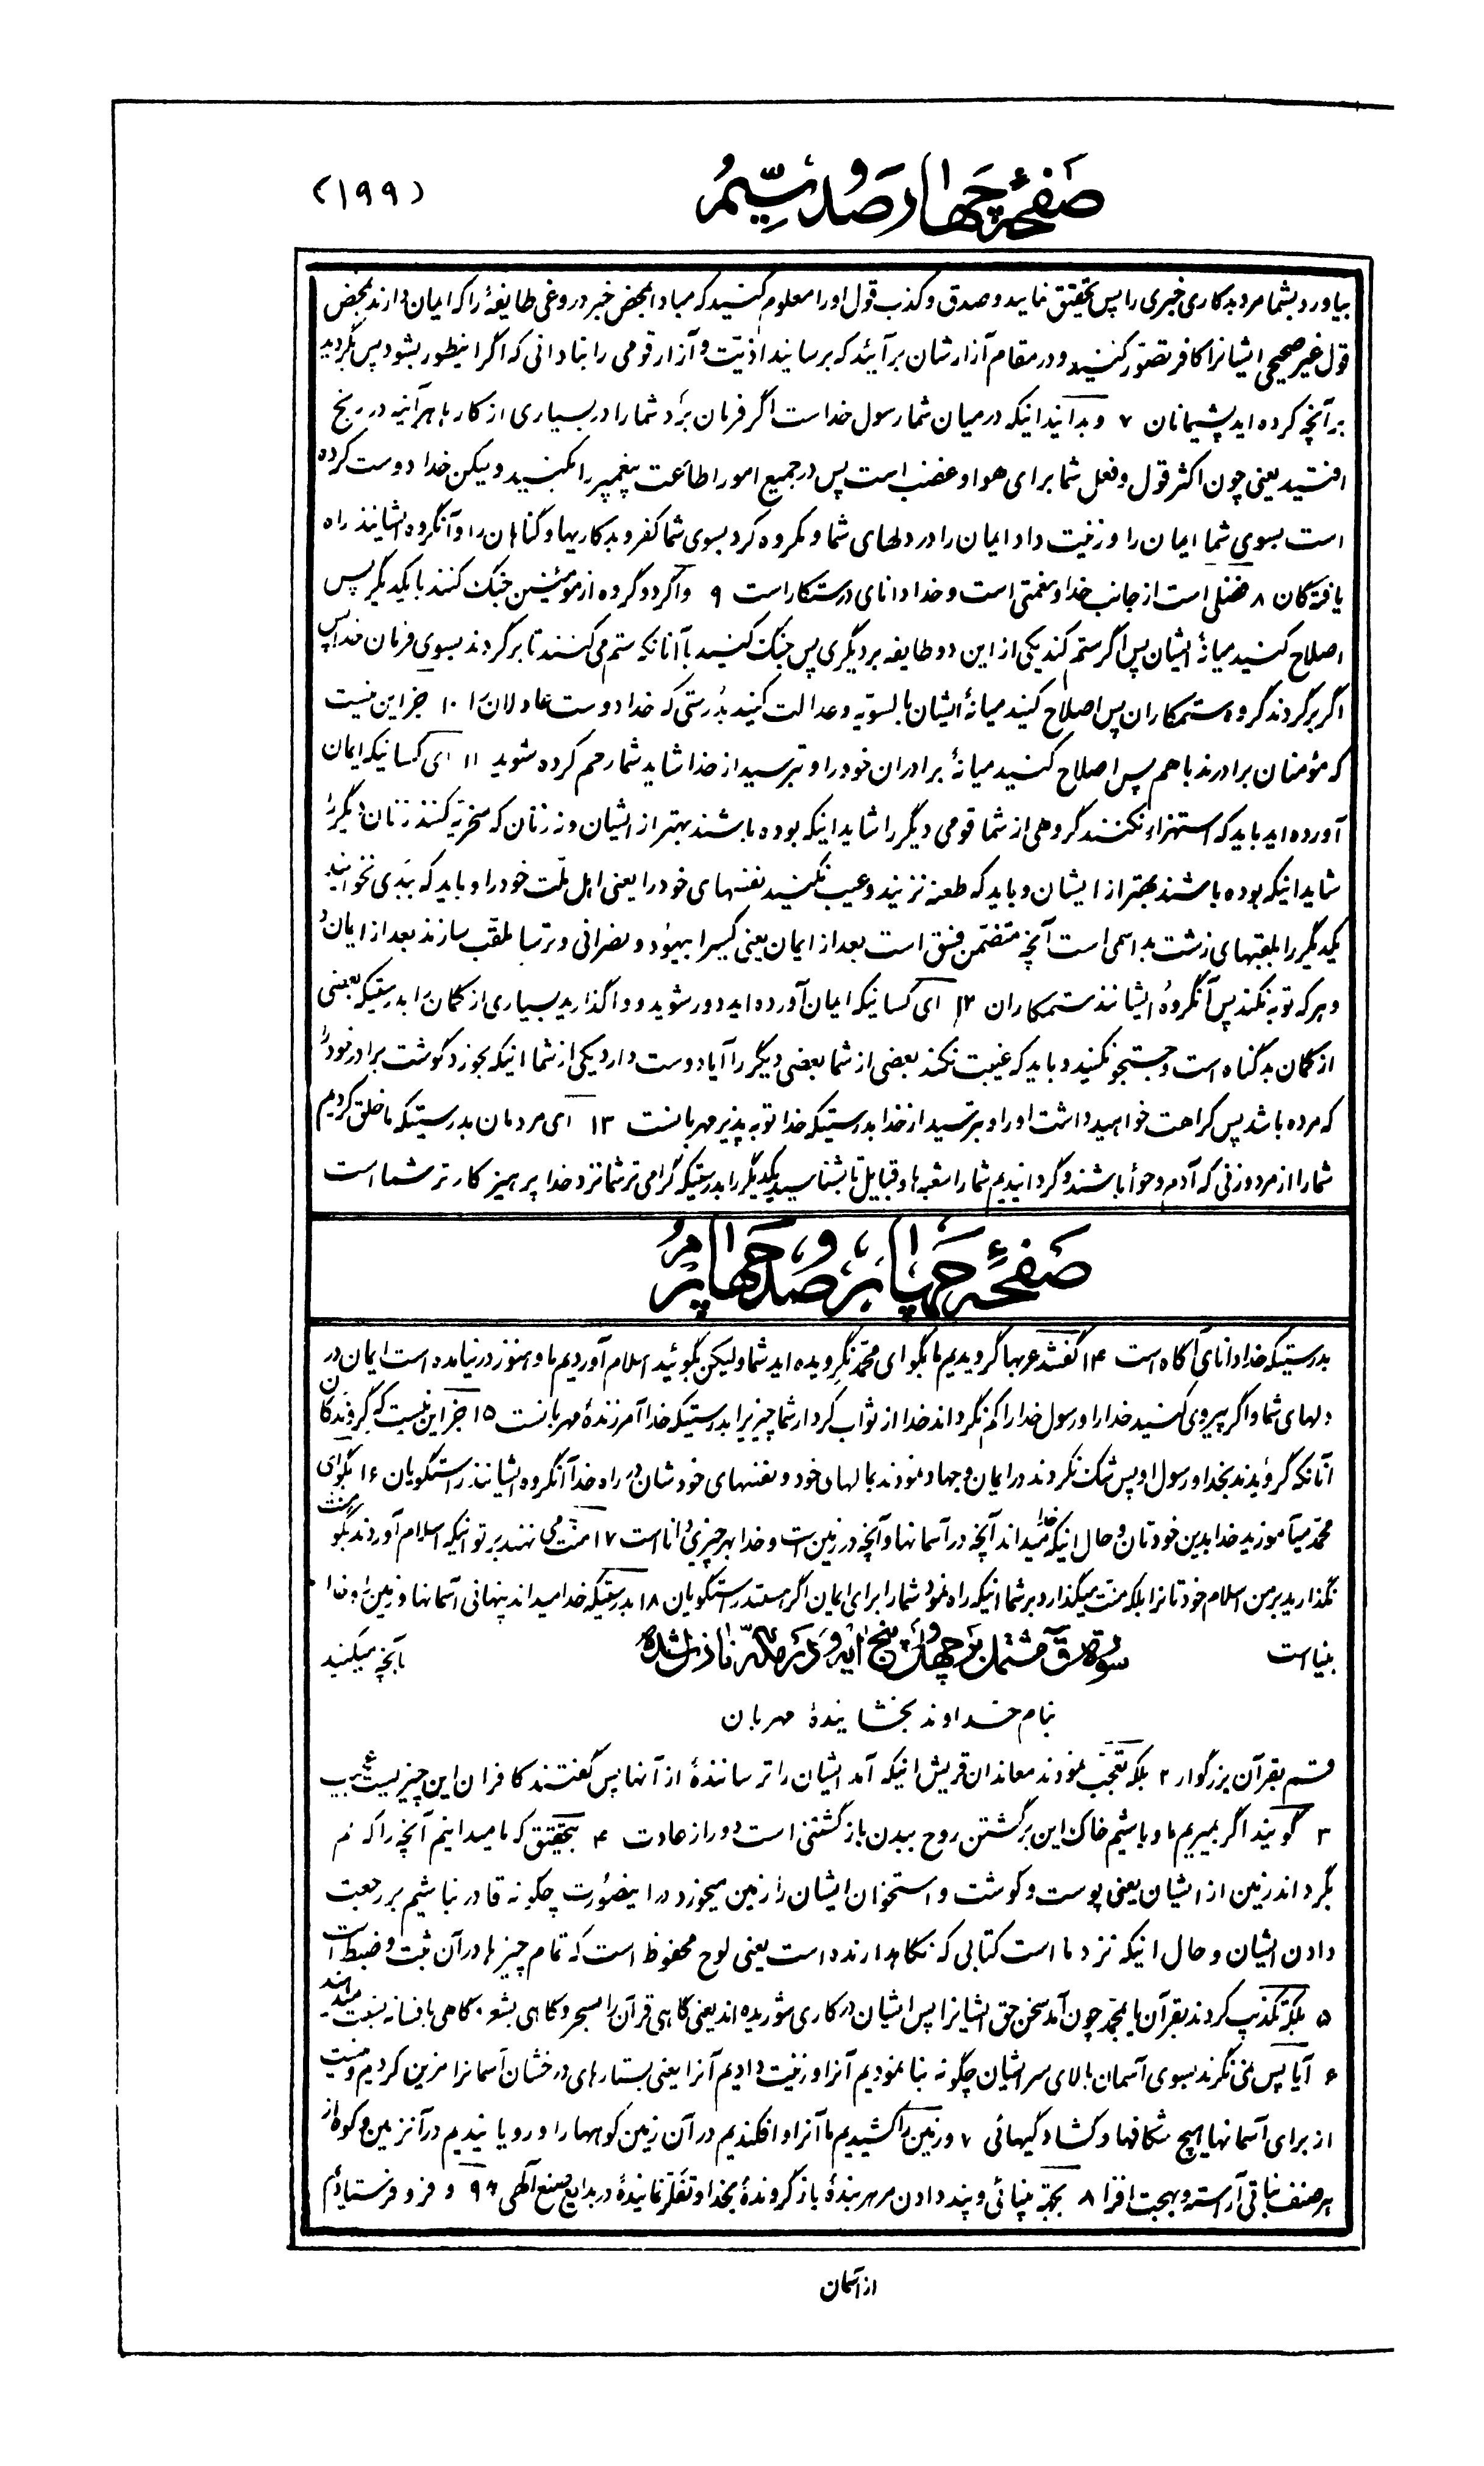 صفحهٔ چهارصد و سیّم
(۱۹۹)
بیاورد بشما مرد بدکاری خبری را پس تحقیق نمایید و صدق و کذب قول او را معلوم کنید که مبادا بمحض خبر دروغی طایفهٔ را که ایمان دارند بمحض
قول غیر صحیحی ایشانرا کافر تصوّر کنید و در مقام آزارشان برآیید که برسانید اذیّت و آزار قومی را بنادانی که اگر اینطور بشود پس بگردید
بر آنچه کرده اید پشیمانان ۷ و بدانید اینکه در میان شما رسول خداست اگر فرمان برد شما را در بسیاری از کارها هرآینه در رنج
افتید یعنی چون اکثر قول و فعل شما برای هوا و غضب است پس در جمیع امور اطاعت پیغمبر را بکنید و لیکن خدا دوست کرده
است بسوی شما ایمان را و زینت داد ایمان را در دلهای شما و مکروه کرد بسوی شما کفر و بدکاریها و گناهان را و آنگروه ایشانند راه
یافتگان ۸ فضلی است از جانب خدا و نعمتی است و خدا دانای درستکار است ۹ و اگر دو گروه از مؤمنین جنگ کنند با یکدیگر پس
اصلاح کنید میانهٔ ایشان پس اگر ستم کند یکی از این دو طایفه بر دیگری پس جنگ کنید با آنانکه ستم می کنند تا برگردند بسوی فرمان خدا پس
اگر برگردند گروه ستمکاران پس اصلاح کنید میانهٔ ایشان بالسویّه و عدالت کنید بدرستی که خدا دوست عادلان را ۱۰ جز این نیست
که مؤمنان برادرند با هم پس اصلاح کنید میانهٔ برادران خود را و بترسید از خدا شاید شما رحم کرده شوید ۱۱ ای کسانیکه ایمان
آورده اید باید که استهزاء نکنند گروهی از شما قومی دیگر را شاید اینکه بوده باشند بهتر از ایشان و نه زنان که سخریّه کنند زنان دیگر را
شاید اینکه بوده باشند بهتر از ایشان و باید که طعنه نزنید و عیب نکنید نفسهای خود را یعنی اهل ملّت خود را و باید که ببدی نخوانید
یکدیگر را بلقبهای زشت بد اسمی است آنچه متضمّن فسق است بعد از ایمان یعنی کسیرا بیهود و نصرانی و ترسا ملقب سازند بعد از ایمان او
و هر که توبه نکند پس آنگروه ایشانند ستمکاران ۱۲ ای کسانیکه ایمان آورده اید دور شوید و واگذارید بسیاری از گمان را بدرستیکه بعضی
از گمان بد گناه است و جستجو نکنید و باید که غیبت نکند بعضی از شما بعضی دیگر را آیا دوست دارد یکی از شما اینکه بخورد گوشت برادر خود را
که مرده باشد پس کراهت خواهید داشت او را و بترسید از خدا بدرستیکه خدا توبه پذیر مهربانست ۱۳ ای مردمان بدرستیکه ما خلق کردیم
شما را از مرد و زنی که آدم و حوّا باشند و گردانیدیم شما را شعبه ها و قبایل تا بشناسید یکدیگر را بدرستیکه گرامی تر شما نزد خدا پرهیز کارتر شما است
صفحهٔ چهارصد و چهارم
بدرستیکه خدا دانای آگاه است ۱۴ گفتند عربها گرویدیم ما بگو ای محمّد نگرویده اید شما و لیکن بگوئید اسلام آوردیم ما و هنوز در نیامده است ایمان در
دلهای شما و اگر پیروی کنید خدا را و رسول خدا را کم نگرداند خدا از ثواب کردار شما چیزیرا بدرستیکه خدا آمرزندهٔ مهربانست ۱۵ جز این نیست که گروندگان
آنانکه گرویدند بخدا و رسول او پس شک نکردند در ایمان و جهاد نمودند بمالهای خود و نفسهای خودشان در راه خدا آنگروه ایشانند راستگویان ۱۶ بگو ای
محمّد میآموزید خدا بدین خودتان و حال اینکه خدا میداند آنچه در آسمانها و آنچه در زمین است و خدا بهر چیزی دانا است ۱۷ منّت می نهند بر تو اینکه اسلام آوردند بگو منّت
نگذارید بر من اسلام خودتانرا بلکه منّت میگذارد بر شما اینکه راه نمود شما را برای ایمان اگر هستید راستگویان ۱۸ بدرستیکه خدا میداند پنهانی آسمانها و زمین را و خدا
بینا است بآنچه میکنید
سورهٔ ق مشتمل بر چهل و پنج آیه و در مکّه نازل شده
بنام خداوند بخشایندهٔ مهربان
قسم بقرآن بزرگوار ۲ بلکه تعجّب نمودند معاندان قریش اینکه آمد ایشان را ترسانندهٔ از آنها پس گفتند کافران این چیزیست عجیب
۳ گویند اگر بمیریم ما و باشیم خاک این برگشتن روح ببدن بازگشتنی است دور از عادت ۴ بتحقیق که ما میدانیم آنچه را که کم
بگرداند زمین از ایشان یعنی پوست و گوشت و استخوان ایشان را زمین میخورد در اینصورت چگونه قادر نباشیم بر رجعت
دادن ایشان و حال اینکه نزد ما است کتابی که نگاهدارنده است یعنی لوح محفوظ است که تمام چیزها در آن ثبت و ضبط است
۵ بلکه تکذیب کردند بقرآن یا بمحمّد چون آمد سخن حق ایشانرا پس ایشان در کاری شوریده اند یعنی گاهی قرآن را بسحر و گاهی بشعر و گاهی بافسانه نسبت میدهند
۶ آیا پس نمی نگرند بسوی آسمان بالای سر ایشان چگونه بنا نمودیم آنرا و زینت دادیم آنرا یعنی بستاره های درخشان آسمانرا مزین کردیم و نیست
از برای آسمانها هیچ شکافها و گشادگیهائی ۷ و زمین را کشیدیم ما آنرا و افکندیم در آن زمین کوهها را و رویانیدیم در آنزمین و کوه از
هر صنف نباتی آراسته و بهجت افزا ۸ بجهة بینائی و پند دادن مر هر بندهٔ بازگروندهٔ بخدا و تفکّر نمایندهٔ در بدایع صنع الهی ۹ و فرو فرستادیم
از آسمان